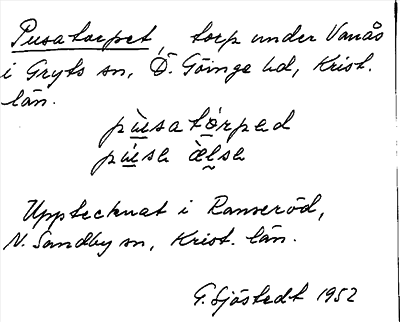 Pusatorpet, torp under Vanås
i Gryts sn, Ö. Göinge hd, Krist.
län.
pùsatórped
púsa àlsa
Upptecknat i Ranseröd,
N. Sandby sn, Krist. län.
G. Sjöstedt 1952